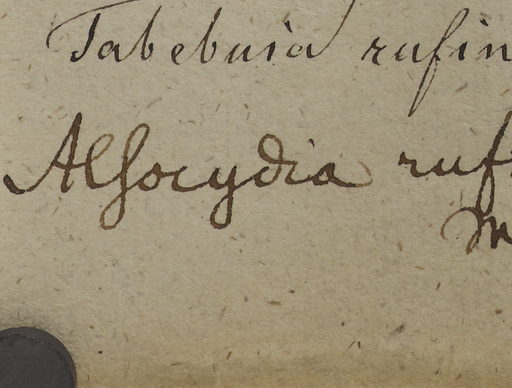 Tabebuia rufin
Alsocydia ruf
M